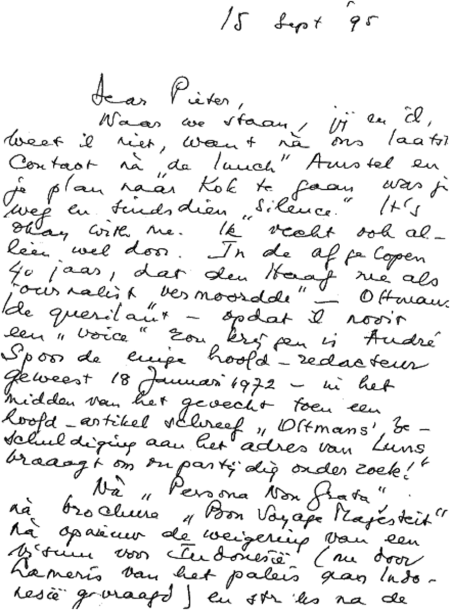 15 Sept '95
Dear Pieter,
Waar we staan, jij en ik,
weet ik niet, want nà ons laatste
Contact nà „de lunch" Amstel en
je plan naar Kok te gaan was je
weg en sindsdien „silence." It's
okay with me. Ik vecht ook al-
léén wel door. In de afgelopen
40 jaar, dat den Haag me als
journalist „vermoordde" — Oltmans
de querilant — opdat ik nooit
een „voice" zou krijgen is André
Spoor de enige hoofd-redacteur
geweest 18 Januari 1972 — in het
midden van het gevecht toen een
hoofd-artikel schreef „Oltmans' be-
schuldiging aan het adres van Luns
vraagt om onpartijdig onderzoek!"
Nà „Persona Non Grata"
nà brochure „Bon Voyage Majesteit"
nà opnieuw de weigering van een
visum voor Indonesië (nu door
kamerls van het paleis aan Indo-
nesië gevraagd) en na de